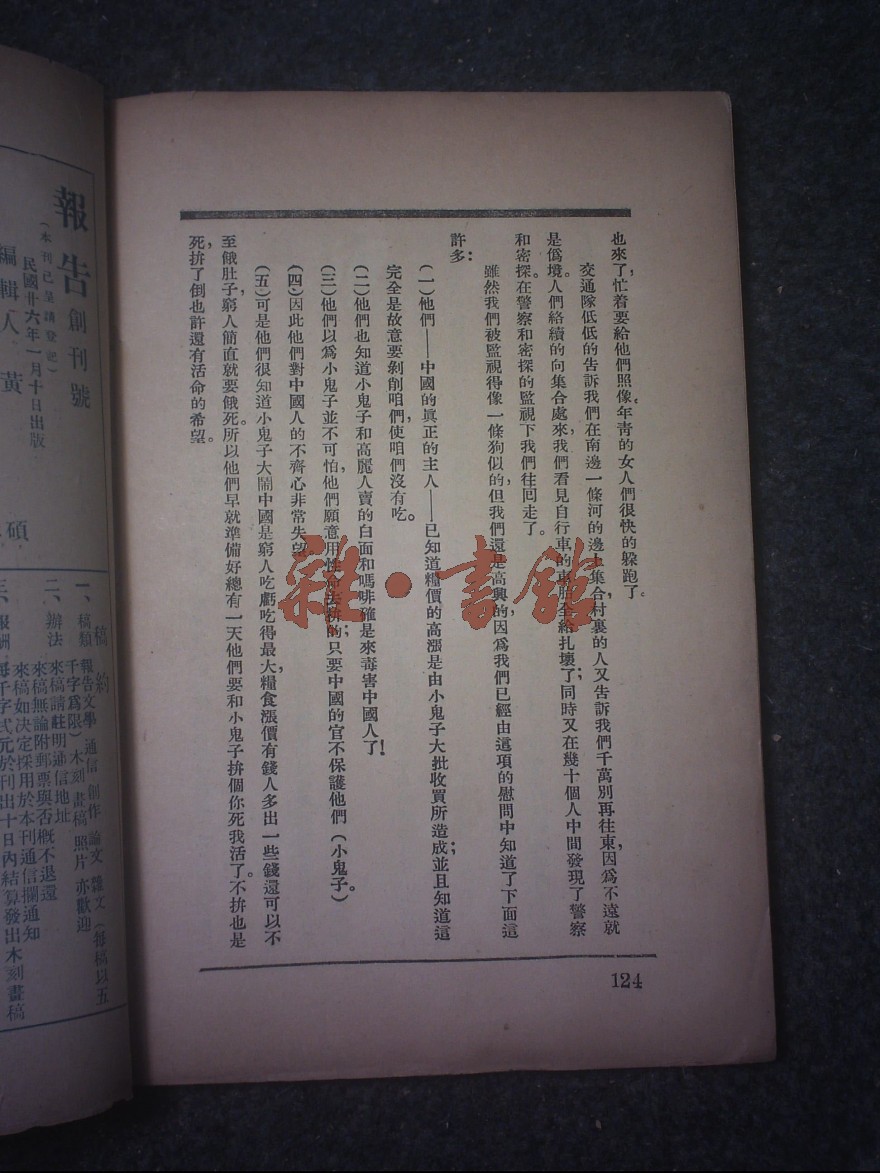 也來了，忙着要給他們照像。年青的女人們很快的躲跑了。
交通隊低低的告訴我們在南邊一條河的邊上集合村裏的人又告訴我們千萬別再往東，因爲不遠就
是僞境。人們絡續的向集合處來，我們看見自行車的車胎全給扎壞了；同時又在幾十個人中間發現了警察
和密探。在警察和密探的監視下我們往回走了。
雖然我們被監視得像一條狗似的，但我們還是高興的，因爲我們已經由這項的慰問中知道了下面這
許多：
（一）他們——中國的眞正的主人——已知道糧價的高漲是由小鬼子大批收買所造成；並且知道這
完全是故意要剝削咱們，使咱們沒有吃。
（二）他們也知道小鬼子和高麗人賣的白面和嗎啡確是來毒害中國人了！
（三）他們以爲小鬼子並不可怕，他們願意用性命去拚的；只要中國的官不保護他們（小鬼子。）
（四）因此他們對中國人的不齊心非常失望
（五）可是他們很知道小鬼子大鬧中國是窮人吃虧吃得最大，糧食漲價有錢人多出一些錢還可以不
至餓肚子，窮人簡直就要餓死。所以他們早就準備好總有一天他們要和小鬼子拚個你死我活了。不拚也是
死，拚了倒也許還有活命的希望。
124
雜·書館
報告創刊號
（本刊已呈請登記）
民國廿六年一月十日出版
編輯人 黃
碩
稿約
一、稿類 報告文學 通信 創作 論文 雜文（每稿以五
千字爲限）木刻 畫稿 照片 亦歡迎
二、辦法 來稿請註明通信地址
來稿無論附郵票與否概不退還
來稿如決定採用於本刊通信欄通知
三、報酬 每千字式元於刊出十日內結算發出木刻畫稿